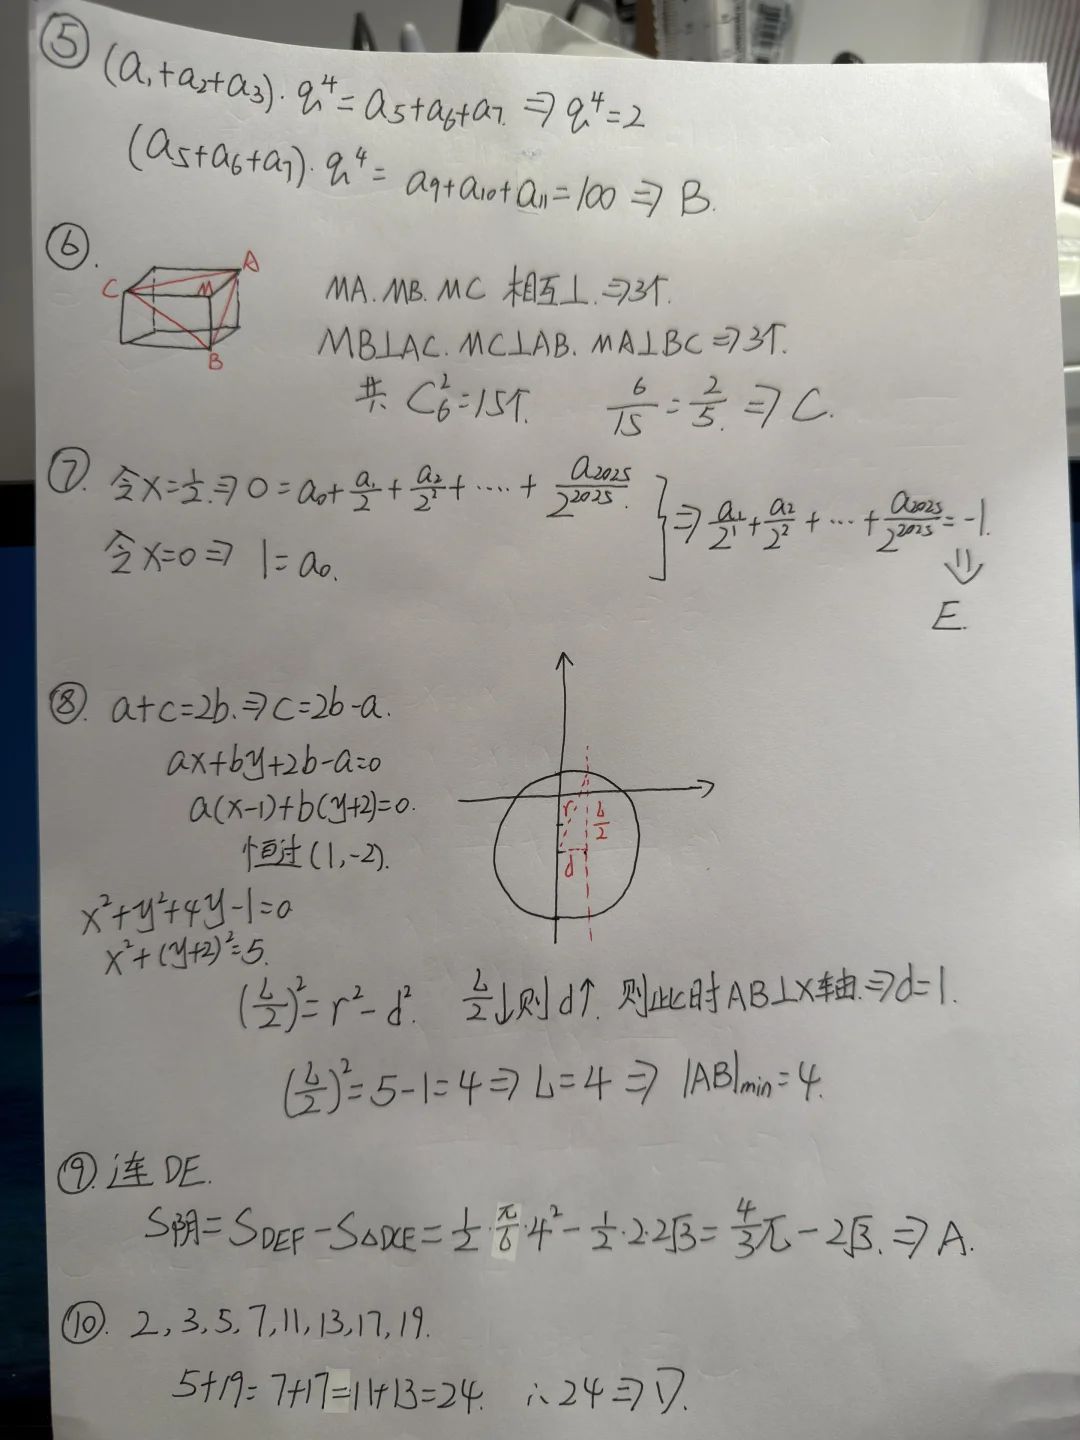 ⑤ (a₁+a₂+a₃)·q⁴=a₅+a₆+a₇ ⇒ q⁴=2
(a₅+a₆+a₇)·q⁴=a₉+a₁₀+a₁₁=100 ⇒ B.
⑥.
A
C
M
B
MA.MB.MC 相互⊥.⇒3个.
MB⊥AC. MC⊥AB. MA⊥BC ⇒3个.
共 C₆²=15个. 6/15=2/5. ⇒ C.
⑦. 令x=1/2.⇒0=a₀+a₁/2+a₂/2²+····+a₂₀₂₅/2²⁰²⁵.
令x=0⇒ 1=a₀.
} ⇒ a₁/2¹+a₂/2²+···+a₂₀₂₅/2²⁰²⁵=-1.
⇓
E.
⑧. a+c=2b.⇒c=2b-a.
ax+by+2b-a=0
a(x-1)+b(y+2)=0.
恒过(1,-2).
x²+y²+4y-1=0
x²+(y+2)²=5.
r
L/2
d
(L/2)²=r²-d². L/2↓则d↑. 则此时AB⊥x轴.⇒d=1.
(L/2)²=5-1=4⇒L=4⇒ |AB|min=4.
⑨. 连DE.
S阴=S_DEF-S△DCE=1/2·π/6·4²-1/2·2·2√3=4/3π-2√3. ⇒A.
⑩. 2,3,5,7,11,13,17,19.
5+19=7+17=11+13=24. ∴24⇒D.